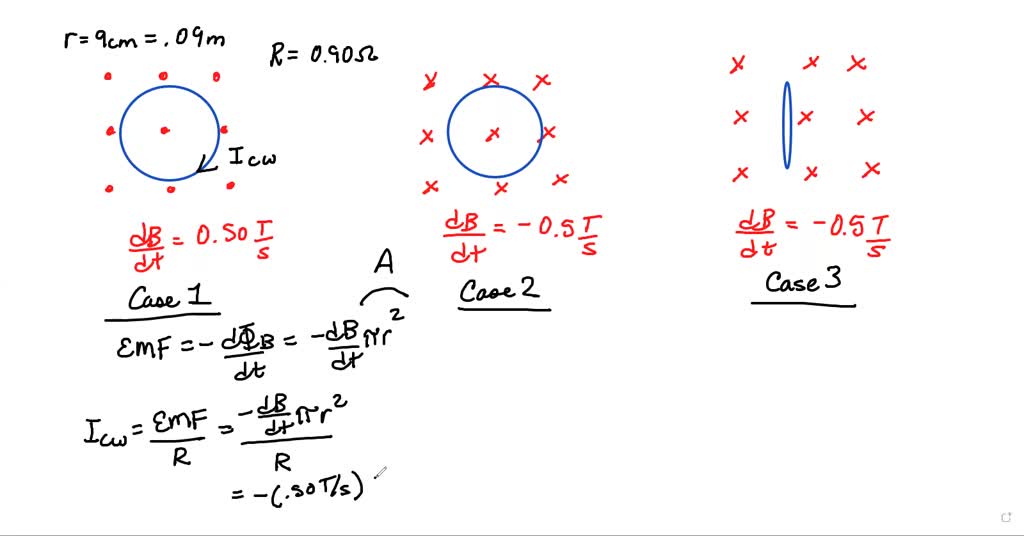 r = 9cm = .09m
R = 0.90Ω
I cw
dB/dt = 0.50 T/s
Case 1
dB/dt = -0.5 T/s
Case 2
dB/dt = -0.5 T/s
Case 3
A
EMF = - dΦB/dt = -dB/dt πr²
I cw = EMF/R = -dB/dt πr² / R
= -(.50T/s)